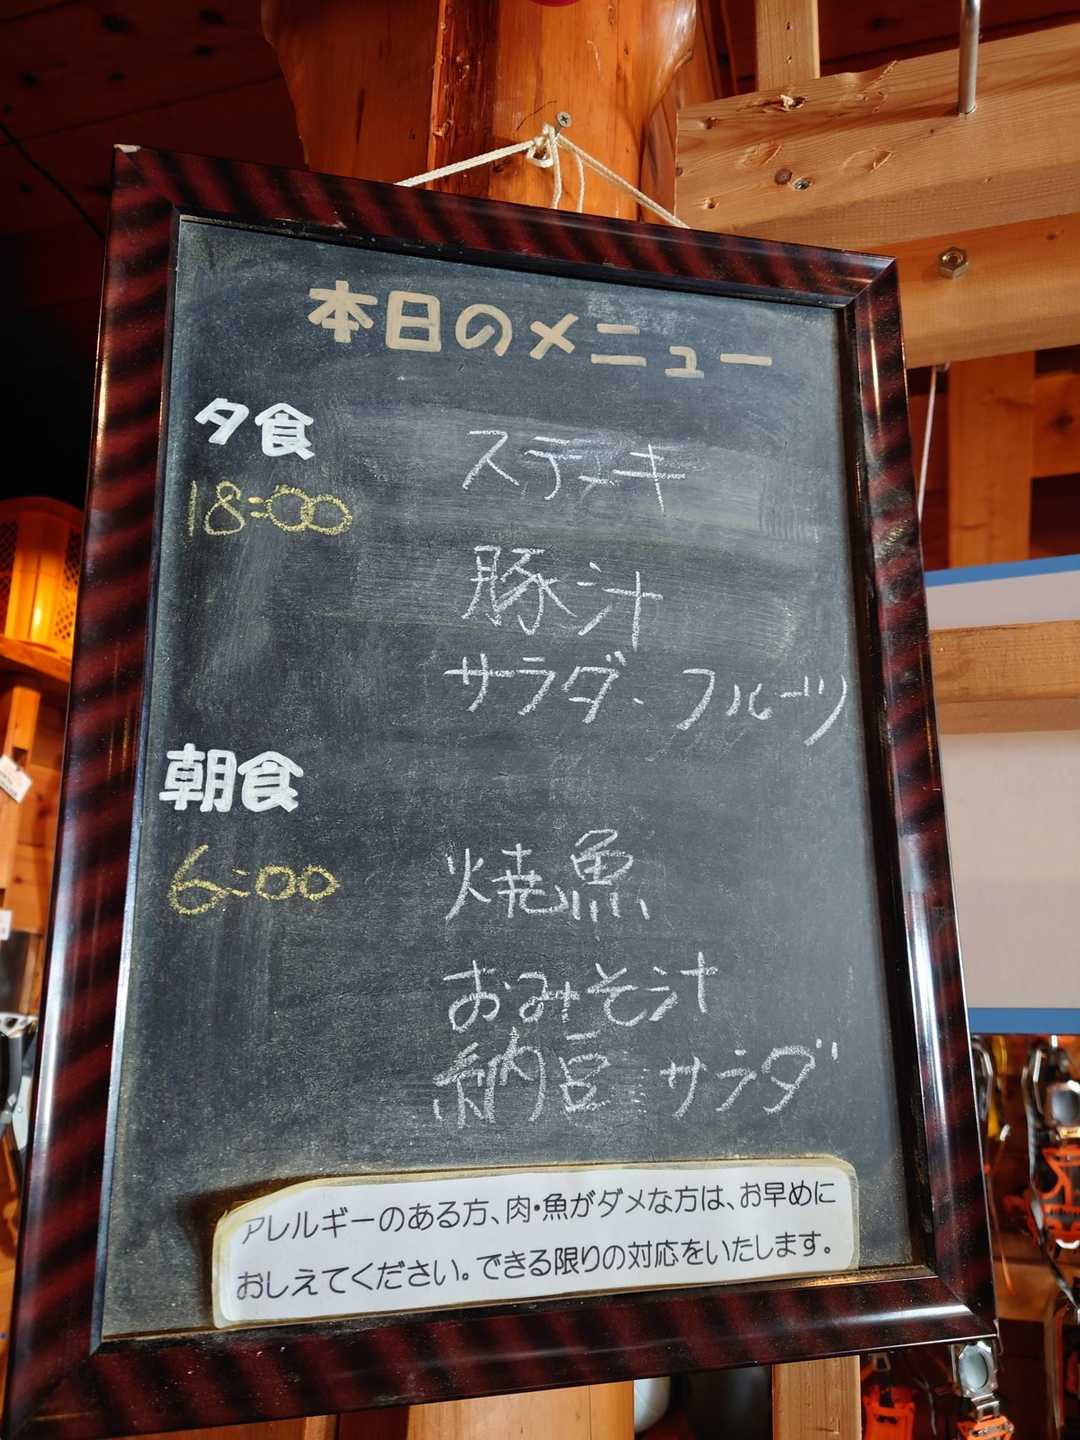 本日のメニュー
夕食
18:00
ステーキ
豚汁
サラダ・フルーツ
朝食
6:00
焼魚
おみそ汁
納豆 サラダ
アレルギーのある方、肉・魚がダメな方は、お早めに
おしえてください。できる限りの対応をいたします。